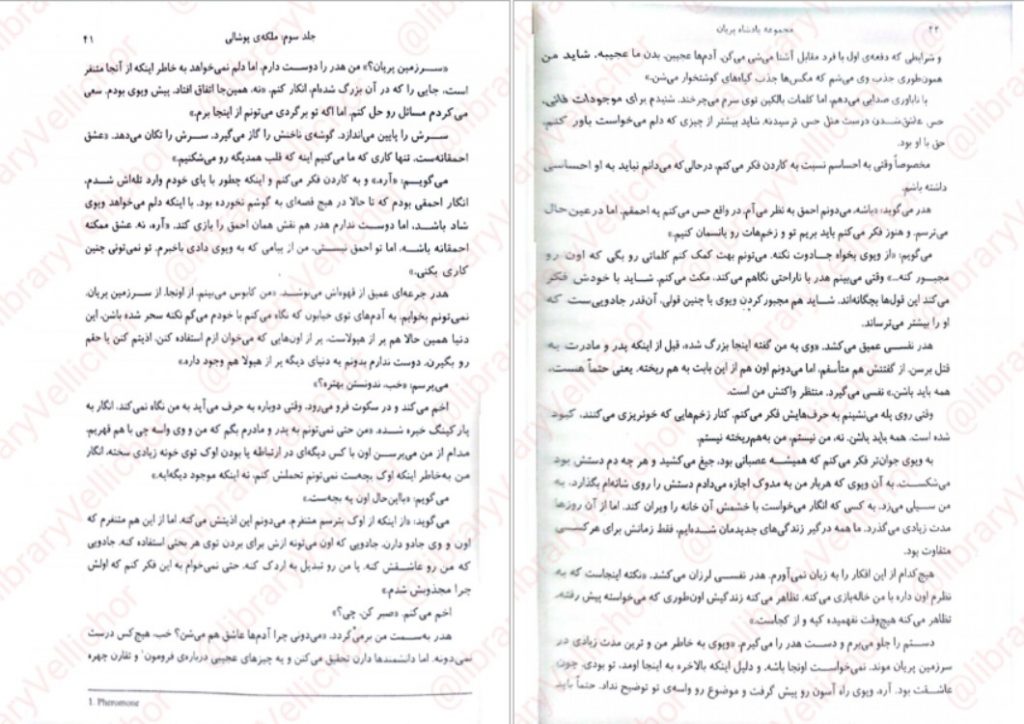 جلد سوم: ملکه‌ی پوشالی
۴۱
«سرزمین پریان؟» من هدر را دوست دارم. اما دلم نمی‌خواهد به خاطر اینکه از آنجا متنفر
است، جایی را که در آن بزرگ شده‌ام، انکار کنم. «نه، همین‌جا اتفاق افتاد. پیش ویوی بودم. سعی
می‌کردم مسائل رو حل کنم. اما اگه تو برگردی می‌تونم از اینجا برم.»
سرش را پایین می‌اندازد. گوشه‌ی ناخنش را گاز می‌گیرد. سرش را تکان می‌دهد. «عشق
احمقانه‌ست. تنها کاری که ما می‌کنیم اینه که قلب همدیگه رو می‌شکنیم.»
می‌گویم: «آره.» و به کاردن فکر می‌کنم و اینکه چطور با پای خودم وارد تله‌اش شدم.
انگار احمقی بودم که تا حالا در هیچ قصه‌ای به گوشم نخورده بود. با اینکه دلم می‌خواهد ویوی
شاد باشد، اما دوست ندارم هدر هم نقش همان احمق را بازی کند. «آره، نه. عشق ممکنه
احمقانه باشه. اما تو احمق نیستی. من از پیامی که به ویوی دادی باخبرم. تو نمی‌تونی چنین
کاری بکنی.»
هدر جرعه‌ای عمیق از قهوه‌اش می‌نوشد. «من کابوس می‌بینم. از اونجا. از سرزمین پریان.
نمی‌تونم بخوابم. به آدم‌های توی خیابون که نگاه می‌کنم با خودم می‌گم نکنه سحر شده باشن. این
دنیا همین حالا هم پر از هیولاست. پر از اون‌هایی که می‌خوان ازم استفاده کنن، اذیتم کنن یا حقم
رو بگیرن. دوست ندارم بدونم یه دنیای دیگه پر از هیولا هم وجود داره.»
می‌پرسم: «خب، ندونستن بهتره؟»
اخم می‌کند و در سکوت فرو می‌رود. وقتی دوباره به حرف می‌آید به من نگاه نمی‌کند. انگار به
پارکینگ خیره شده. «من حتی نمی‌تونم به پدر و مادرم بگم که من و وی واسه چی با هم قهریم.
مدام از من می‌پرسن اون با کس دیگه‌ای در ارتباطه یا بودن اوک توی خونه زیادی سخته. انگار
من به‌خاطر اینکه اوک بچه‌ست نمی‌تونم تحملش کنم، نه اینکه موجود دیگه‌ایه.»
می‌گویم: «بااین‌حال اون یه بچه‌ست.»
می‌گوید: «از اینکه از اوک بترسم متنفرم. می‌دونم این اذیتش می‌کنه. اما از این هم متنفرم که
اون و وی جادو دارن. جادویی که اون می‌تونه ازش برای بردن توی هر بحثی استفاده کنه. جادویی
که من رو عاشقش کنه. یا من رو تبدیل به اردک کنه. حتی نمی‌خوام به این فکر کنم که اولش
چرا مجذوبش شدم.»
اخم می‌کنم. «صبر کن، چی؟»
هدر به‌سمت من برمی‌گردد. «می‌دونی چرا آدم‌ها عاشق هم می‌شن؟ خب، هیچ‌کس درست
نمی‌دونه. اما دانشمندها دارن تحقیق می‌کنن و یه چیزهای عجیبی درباره‌ی فرومون¹ و تقارن چهره
1. Pheromone
مجموعه پادشاه پریان
۴۲
و شرایطی که دفعه‌ی اول با فرد مقابل آشنا می‌شی می‌گن. آدم‌ها عجیبن. بدن ما عجیبه. شاید من
همون‌طوری جذب وی می‌شم که مگس‌ها جذب گیاه‌های گوشتخوار می‌شن.»
با ناباوری صدایی می‌دهم. اما کلمات بالکین توی سرم می‌چرخند. شنیدم برای موجودات فانی،
حس عاشق‌شدن درست مثل حس ترسیدنه. شاید بیشتر از چیزی که دلم می‌خواست باور کنم،
حق با او بود.
مخصوصاً وقتی به احساسم نسبت به کاردن فکر می‌کنم، درحالی‌که می‌دانم نباید به او احساسی
داشته باشم.
هدر می‌گوید: «باشه، می‌دونم احمق به نظر می‌آم. در واقع حس می‌کنم یه احمقم. اما در عین حال
می‌ترسم. و هنوز فکر می‌کنم باید بریم تو و زخم‌هات رو پانسمان کنیم.»
می‌گویم: «از ویوی بخواه جادوت نکنه. می‌تونم بهت کمک کنم کلماتی رو بگی که اون رو
مجبور کنه...» وقتی می‌بینم هدر با ناراحتی نگاهم می‌کند، مکث می‌کنم. شاید با خودش فکر
می‌کند این قول‌ها بچگانه‌اند. شاید هم مجبورکردن ویوی با چنین قولی، آن‌قدر جادویی‌ست که
او را بیشتر می‌ترساند.
هدر نفسی عمیق می‌کشد. «وی به من گفته اینجا بزرگ شده، قبل از اینکه پدر و مادرت به
قتل برسن. از گفتنش هم متأسفم، اما می‌دونم اون هم از این بابت به هم ریخته. یعنی حتماً هست.
همه باید باشن.» نفسی می‌گیرد. منتظر واکنش من است.
وقتی روی پله می‌نشینم به حرف‌هایش فکر می‌کنم. کنار زخم‌هایی که خونریزی می‌کنند، کبود
شده است. همه باید باشن. نه، من نیستم. من به‌هم‌ریخته نیستم.
به ویوی جوان‌تر فکر می‌کنم که همیشه عصبانی بود، جیغ می‌کشید و هر چه دم دستش بود
می‌شکست. به آن ویوی که هربار من به مدوک اجازه می‌دادم دستش را روی شانه‌ام بگذارد، به
من سیلی می‌زد. به کسی که انگار می‌خواست با خشمش آن خانه را ویران کند. اما از آن روزها
مدت زیادی می‌گذرد. ما همه درگیر زندگی‌های جدیدمان شده‌ایم، فقط زمانش برای هر کسی
متفاوت بود.
هیچ‌کدام از این افکار را به زبان نمی‌آورم. هدر نفسی لرزان می‌کشد. «نکته اینجاست که به
نظرم اون داره با من خاله‌بازی می‌کنه. تظاهر می‌کنه زندگیش اون‌طوری که می‌خواسته پیش رفته.
تظاهر می‌کنه هیچ‌وقت نفهمیده کیه و از کجاست.»
دستم را جلو می‌برم و دست هدر را می‌گیرم. «ویوی به خاطر من و ترین مدت زیادی در
سرزمین پریان موند. نمی‌خواست اونجا باشه. و دلیل اینکه بالاخره به اینجا اومد، تو بودی. چون
عاشقت بود. آره، ویوی راه آسون رو پیش گرفت و موضوع رو واسه‌ی تو توضیح نداد. حتماً باید
@libraryVellichor